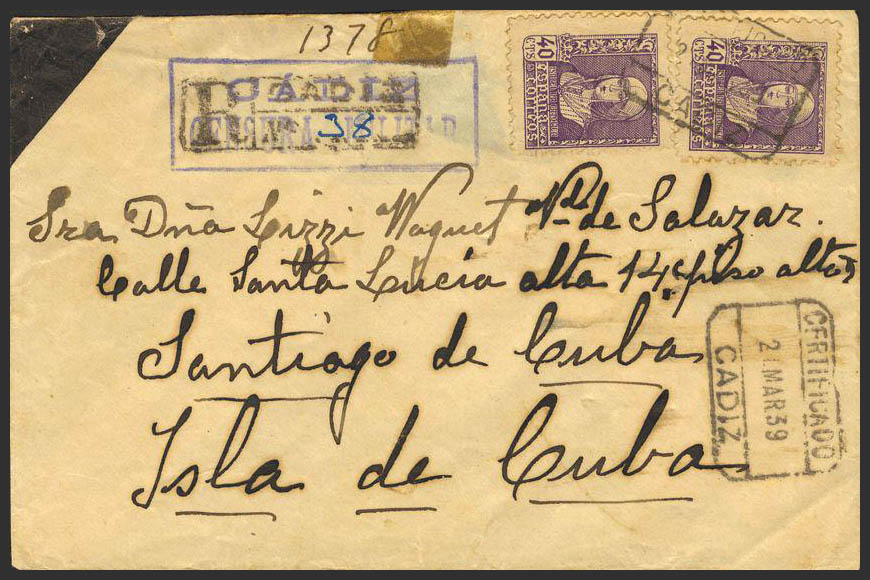 1378
40 CTS
ESPAÑA
CORREOS
40 CTS
ESPAÑA
CORREOS
CÁDIZ
CENSURA MILITAR
R CADIZ
Nº 38
Sra Dña Lizzi Waquet Vda de Salazar.
Calle Santa Lucia alta 14 piso alto
Santiago de Cuba
Isla de Cuba
CERTIFICADO
21 MAR 39
CADIZ